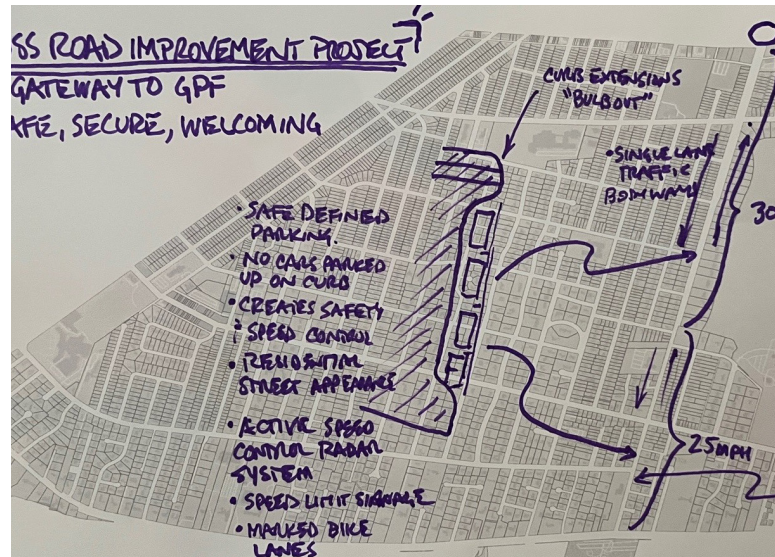 SS ROAD IMPROVEMENT PROJECT
GATEWAY TO GPF
AFE, SECURE, WELCOMING
CURB EXTENSIONS
"BULBOUT"
• SINGLE LANE
TRAFFIC
BOTH WAYS
30
• SAFE DEFINED
PARKING.
• NO CARS PARKED
UP ON CURB
• CREATES SAFETY
& SPEED CONTROL
• RESIDENTIAL
STREET APPEARANCE
• ACTIVE SPEED
CONTROL RADAR
SYSTEM
• SPEED LIMIT SIGNAGE
• MARKED BIKE
LANES
25MPH